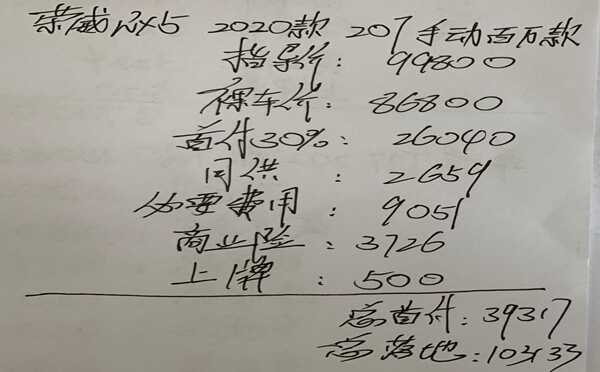 荣威RX5 2020款 20T手动百万款
指导价: 99800
裸车价: 86800
首付30%: 26040
月供: 2659
必要费用: 9051
商业险: 3726
上牌: 500
总首付: 39317
总落地: 103433